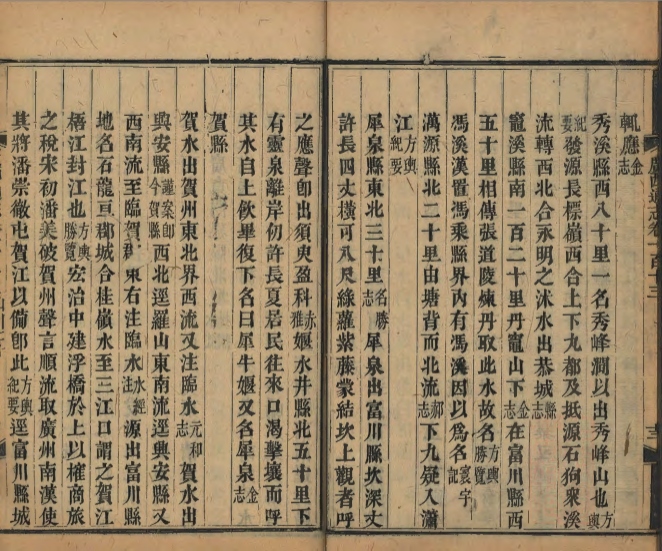 輒應金志
秀溪縣西八十里一名秀峰澗以出秀峰山也方輿
紀要發源長標嶺西合上下九都及抵源石狗眾溪
流轉西北合永明之沭水出恭城縣志
竈溪縣南一百二十里丹竈山下金志在富川縣西
五十里相傳張道陵煉丹取此水故名方輿勝覽
馮溪漢置馮乘縣界內有馮溪因以為名寰宇記
萬源縣北二十里由塘背而北流郝志下九疑入瀟
江方輿紀要
犀泉縣東北三十里名勝志犀泉出富川縣坎深丈
許長四丈橫可八尺綠蘿紫藤蒙結坎上觀者呼
之應聲卽出須臾盈科赤雅㜩水井縣北五十里下
有靈泉離岸仞許長夏居民往來口渴擊壤而呼
其水自上飲畢復下名曰犀牛㜩又名犀泉金志
賀縣
賀水出賀州東北界西流又注臨水元和志賀水出
興安縣謹案卽今賀縣西北逕羅山東南流逕興安縣又
西南流至臨賀郡東右注臨水水經注源出富川縣
地名石龍亘郡城合桂嶺水至三江口謂之賀江
梧江封江也方輿勝覽宏治中建浮橋於上以榷商旅
之稅宋初潘美破賀州聲言順流取廣州南漢使
其將潘崇徹屯賀江以備卽此方輿紀要逕富川縣城